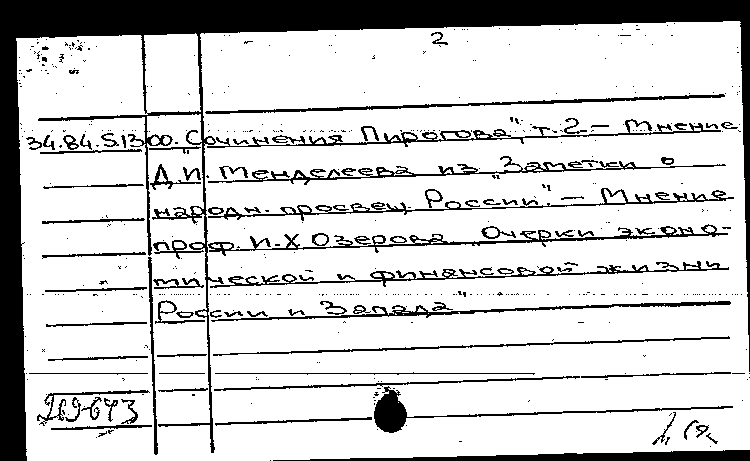 2
34.84.S.1300. "Сочинения Пирогова", т. 2 – Мнение
Д.И. Менделеева из "Заметки о
народн. просвещ. России". – Мнение
проф. И.Х Озерова "Очерки эконо-
мической и финансовой жизни
России и Запада"
269643